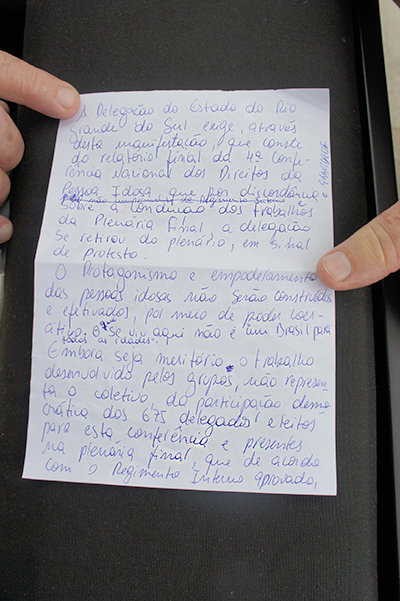 A Delegação do Estado do Rio
Grande do Sul exige, através
desta manifestação, que conste
do relatório final da 4ª Confe-
rência Nacional dos Direitos da
Pessoa Idosa que por discordância
sobre a condução dos trabalhos
da Plenária Final a delegação
se retirou do plenário, em sinal
de protesto.
O Protagonismo e empoderamento
das pessoas idosas não serão construídos
e efetivados, por meio de poder coer-
ativo. O que se viu aqui não é um Brasil para
todas as idades.
Embora seja meritório o trabalho
desenvolvido pelos grupos, não represen-
ta o coletivo da participação demo-
crática dos 675 delegados eleitos
para esta conferência e presentes
na plenária final, que de acordo
com o Regimento Interno aprovado,